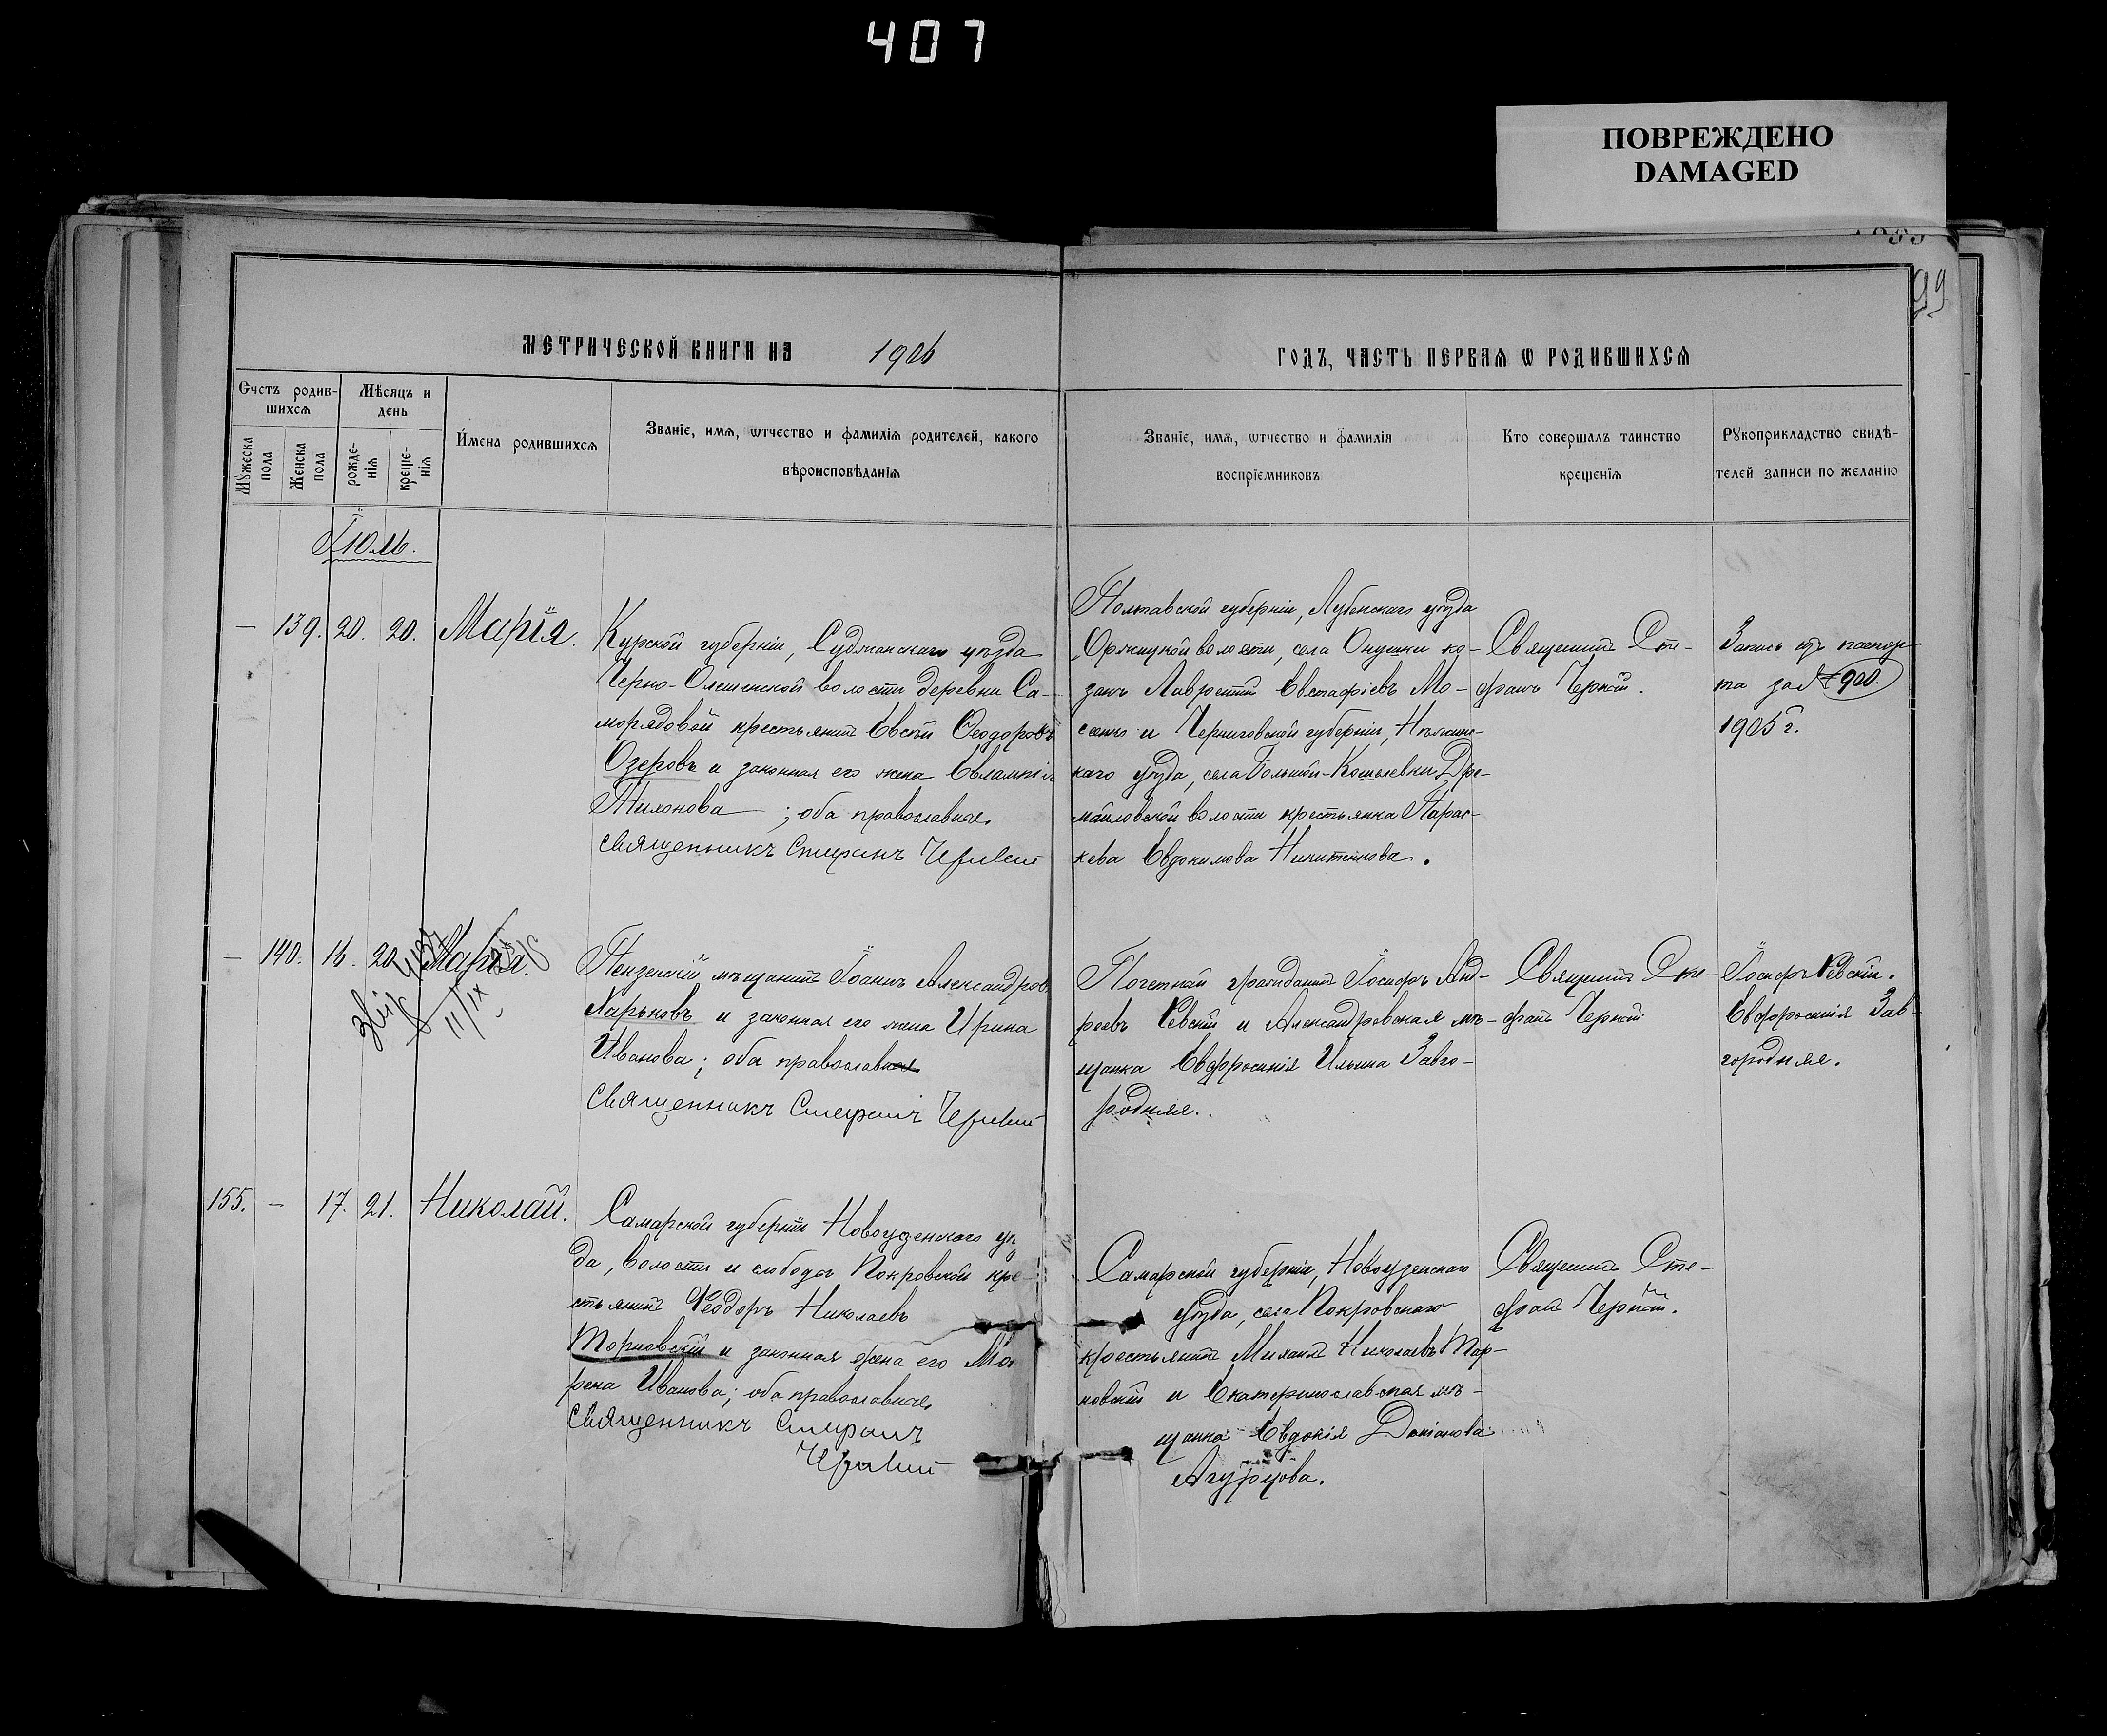 407
ПОВРЕЖДЕНО
DAMAGED
99
МЕТРИЧЕСКОЙ КНИГИ НА 1906
ГОДЪ, ЧАСТЬ ПЕРВАЯ Ѡ РОДИВШИХСЯ
Счетъ родив-
шихся
Мѣсяцъ и
день
Мꙋжеска
пола
Женска
пола
рожде-
нія
креще-
нія
Имена родившихся
Званіе, имя, ѡтчество и фамилія родителей, какого
вѣроисповѣданія
Званіе, имя, ѡтчество и фамилія
воспріемниковъ
Кто совершалъ таинство
крещенія
Рꙋкоприкладство свидѣ-
телей записи по желанію
Іюль.
— 139. 20. 20. Марія.
Курской губерніи, Суджанскаго уѣзда
Черно-Олешенской волости деревни Са-
морядовой крестьянинъ Евсѣй Ѳеодоровъ
Озеровъ и законная его жена Евлампія
Тихонова ; оба православные
священникъ Стефанъ
Полтавской губерніи, Лубенскаго уѣзда
Оржицкой волости, села Онушки ко-
закъ Лаврентій Евстафіевъ Мо-
и Черниговской губерніи, Нѣжинс-
каго уѣзда, села Большой-Кошелевки Дре-
майловской волости крестьянка Парас-
кева Евдокимова Никитенкова.
Священникъ Сте-
фанъ
Запись изъ паспор-
та за № 900.
1905 г.
— 140. 16. 20. Марія.
11/IX
Пензенскій мѣщанинъ Іоаннъ Александровъ
Харьковъ и законная его жена Ирина
Иванова; оба православные
священникъ Стефанъ
Почетный гражданинъ Іосифъ Анд-
реевъ Невскій и Александровская мѣ-
щанка Евфросинія Ильина Завго-
родняя.
Священникъ Сте-
фанъ
Іосифъ Невскій.
Евфросинія Зав-
городняя.
155. — 17. 21. Николай.
Самарской губерніи Новоузенскаго уѣз
да, волости и слободы Покровской кре-
стьянинъ Ѳеодоръ Николаевъ
Торновскій и законная жена его Ма
рена Иванова; оба православные
священникъ Стефанъ
Самарской губерніи, Новоузенскаго
уѣзда, села Покровскаго
крестьянинъ Михаилъ Николаевъ Тор-
новскій и Екатеринославская мѣ-
щанка Евдокія
Агурцова.
Священникъ Сте-
фанъ